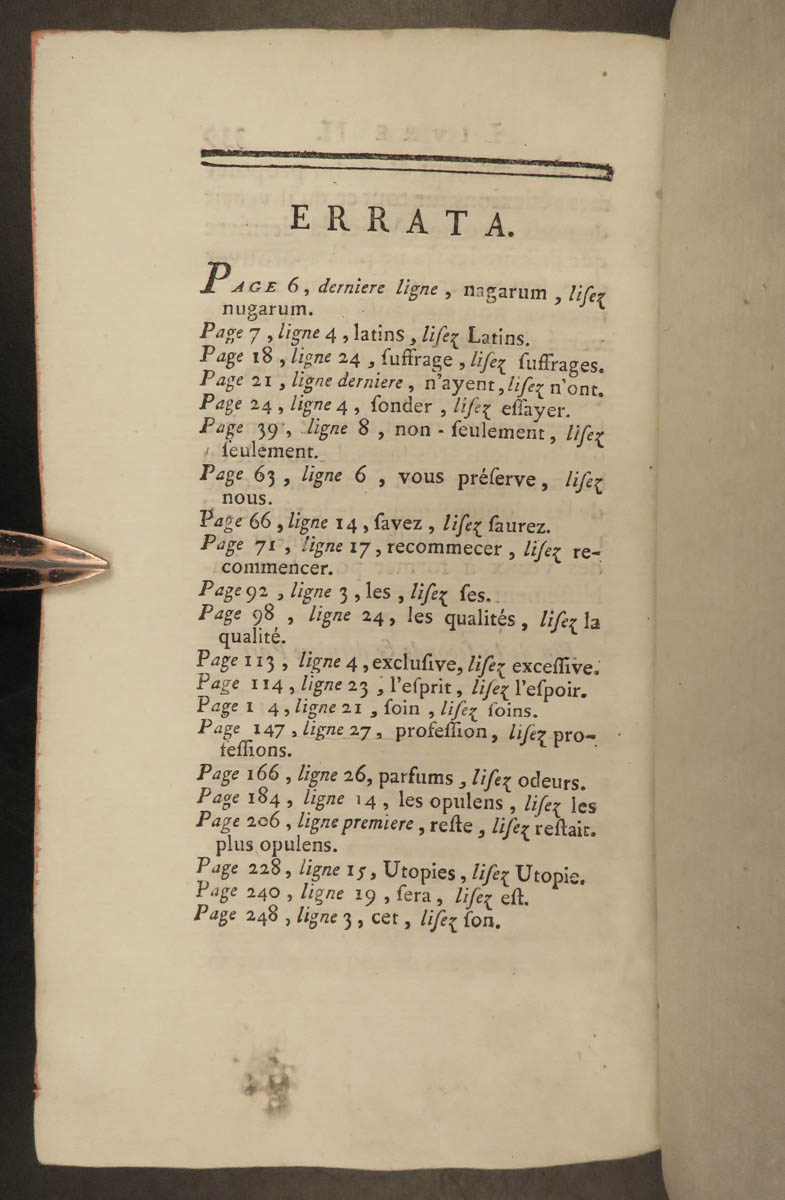 ERRATA.
PAGE 6, derniere ligne, nagarum, liſez
nugarum.
Page 7, ligne 4, latins, liſez Latins.
Page 18, ligne 24, ſuffrage, liſez ſuffrages.
Page 21, ligne derniere, n'ayent, liſez n'ont.
Page 24, ligne 4, ſonder, liſez eſſayer.
Page 39, ligne 8, non-ſeulement, liſez
ſeulement.
Page 63, ligne 6, vous préſerve, liſez
nous.
Page 66, ligne 14, ſavez, liſez ſaurez.
Page 71, ligne 17, recommecer, liſez re-
commencer.
Page 92, ligne 3, les, liſez ſes.
Page 98, ligne 24, les qualités, liſez la
qualité.
Page 113, ligne 4, excluſive, liſez exceſſive.
Page 114, ligne 23, l'eſprit, liſez l'eſpoir.
Page 1 4, ligne 21, ſoin, liſez ſoins.
Page 147, ligne 27, profeſſion, liſez pro-
feſſions.
Page 166, ligne 26, parfums, liſez odeurs.
Page 184, ligne 14, les opulens, liſez les
Page 206, ligne premiere, reſte, liſez reſtait.
plus opulens.
Page 228, ligne 15, Utopies, liſez Utopie.
Page 240, ligne 19, ſera, liſez eſt.
Page 248, ligne 3, cet, liſez ſon.